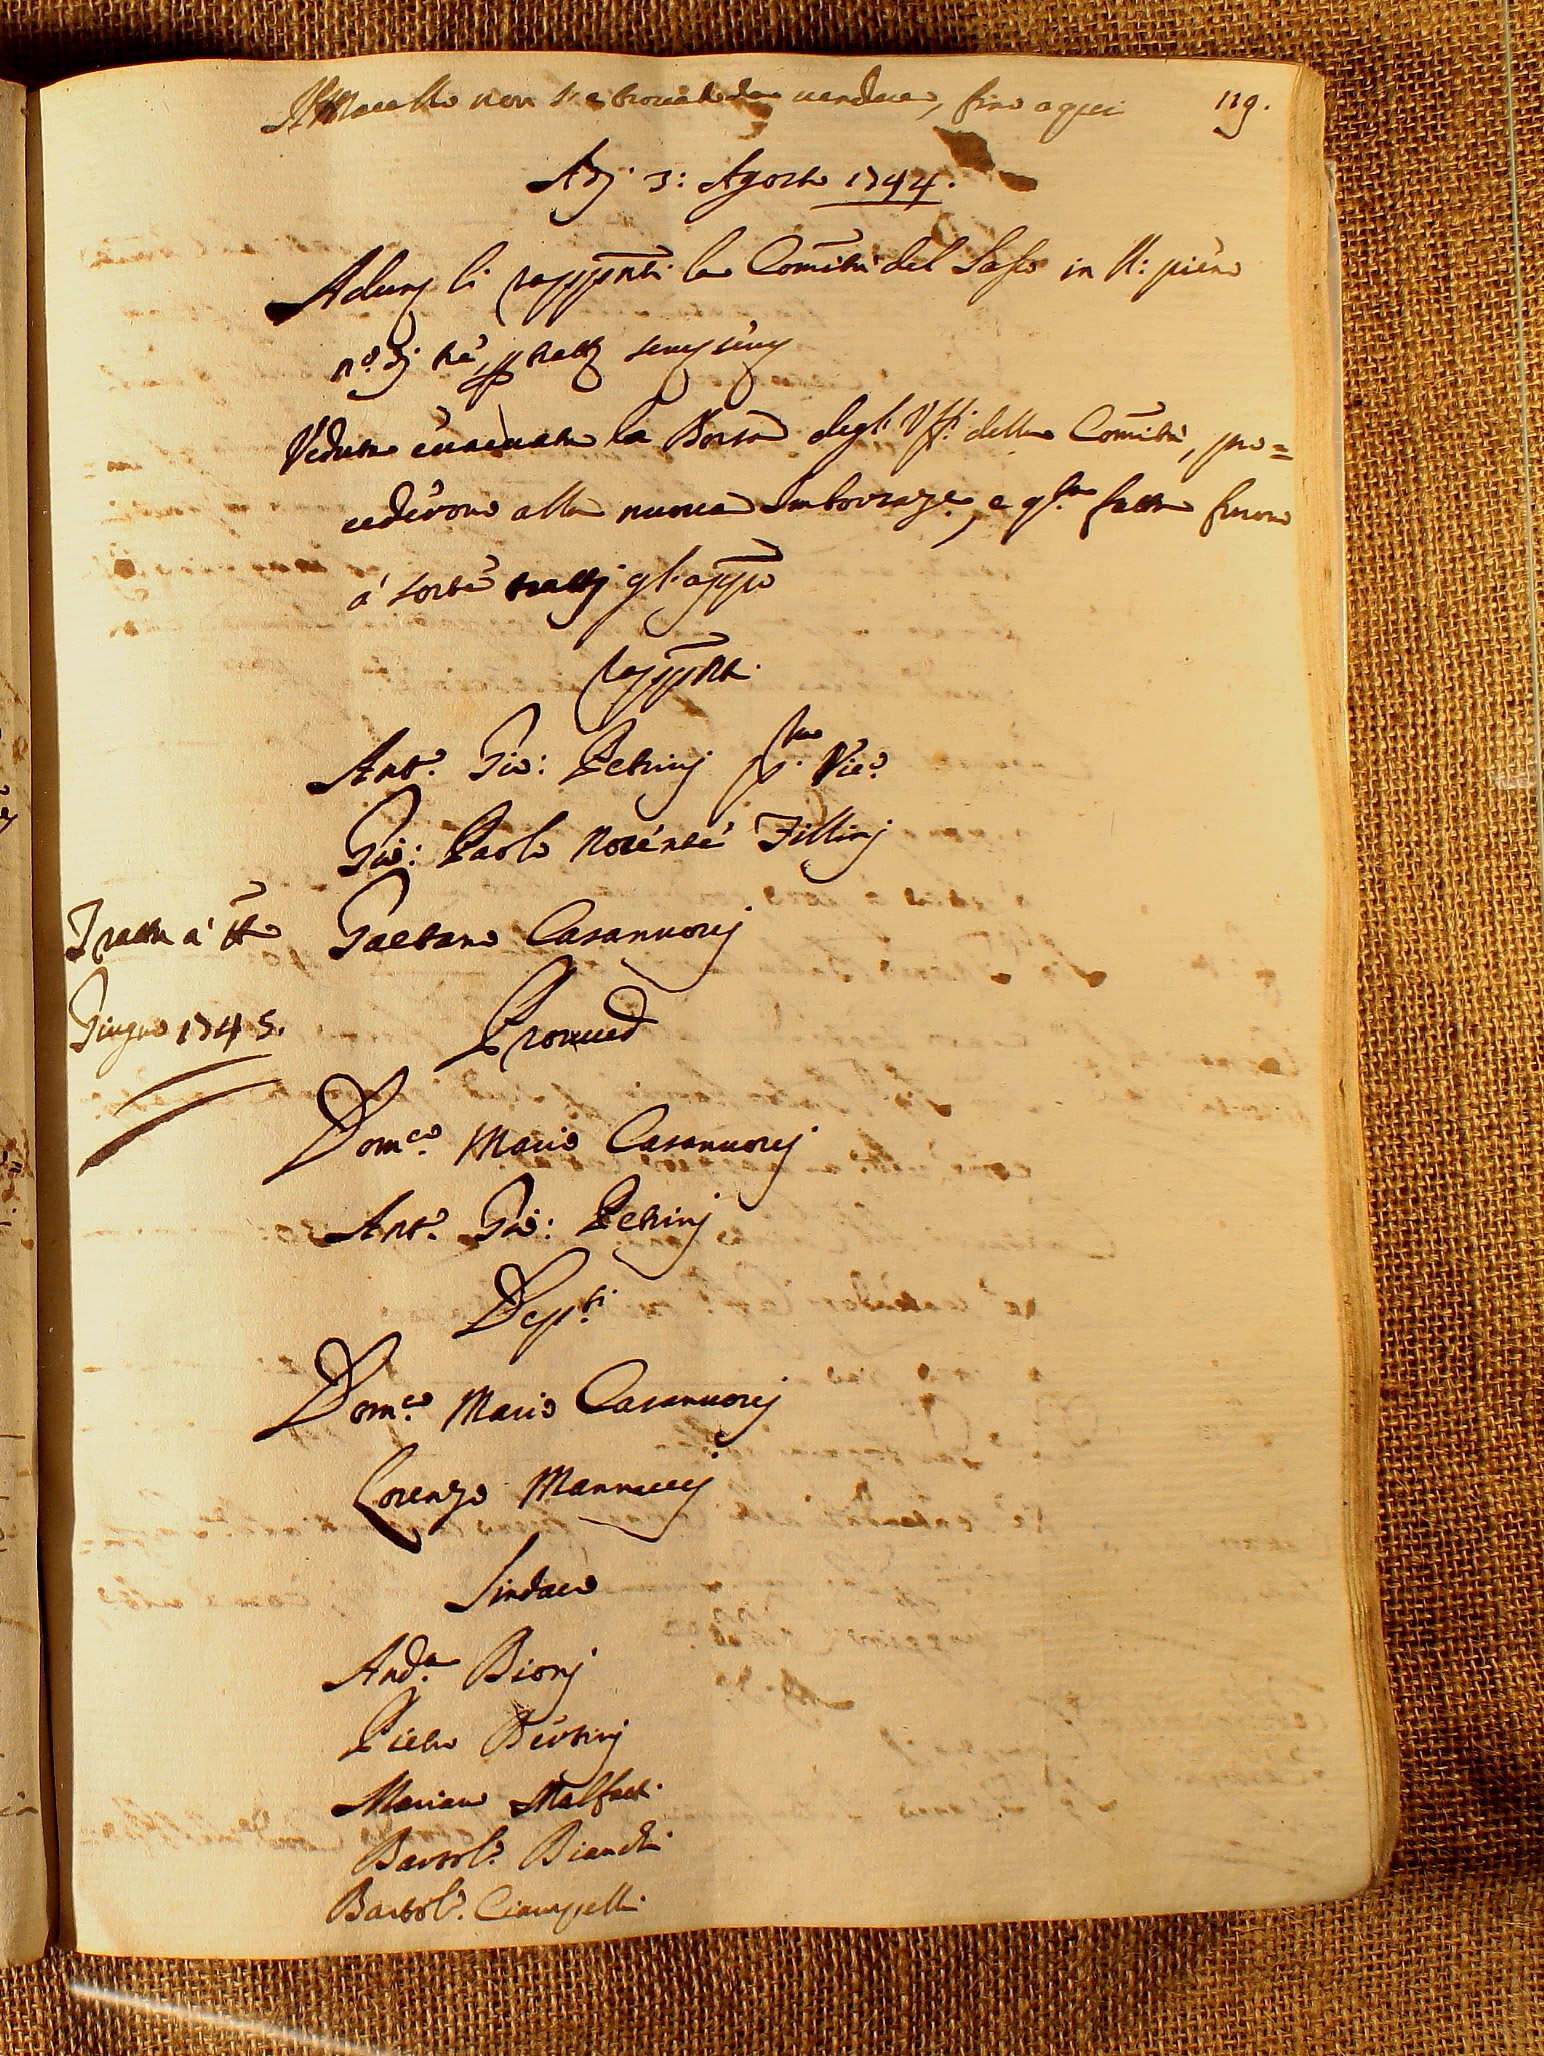 Il Macello non s'è trovato da vendere, fino a qui
119.
Adj 3: Agosto 1744.
Adunj li rapppnti la Comĩtà del Sasso in N: pieno
nº. dj tré,
Veduta evacuata la Borsa degl'Uffi: della Comĩtà, pro=
cedérono alla nuova Imborsazne, e qsta fatta furono
á sorté trattj gl'appo
Rapppnti
Antº. Gio: Petrinj Vicº.
Gio: Paolo Fillinj
Tratta à tto
Gaetano Casanuovj
Giugno 1745.
Provved
Domco. Mario Casanuovj
Antº. Gio: Petrinj
Depti
Domco. Mario Casanuovj
Lorenzo Mannuccj
Sindaco
Anda Bionj
Pietro Bértinj
Mariano Malfatti
Bartolº. Bianchi
Bartolº. Ciampelli